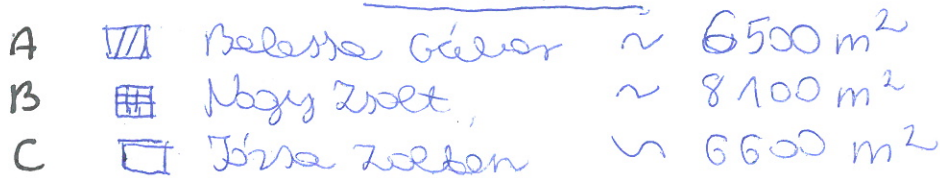 A Balassa Gábor ~ 6500 m²
B Nagy Zsolt ~ 8100 m²
C Józsa Zoltán ~ 6600 m²